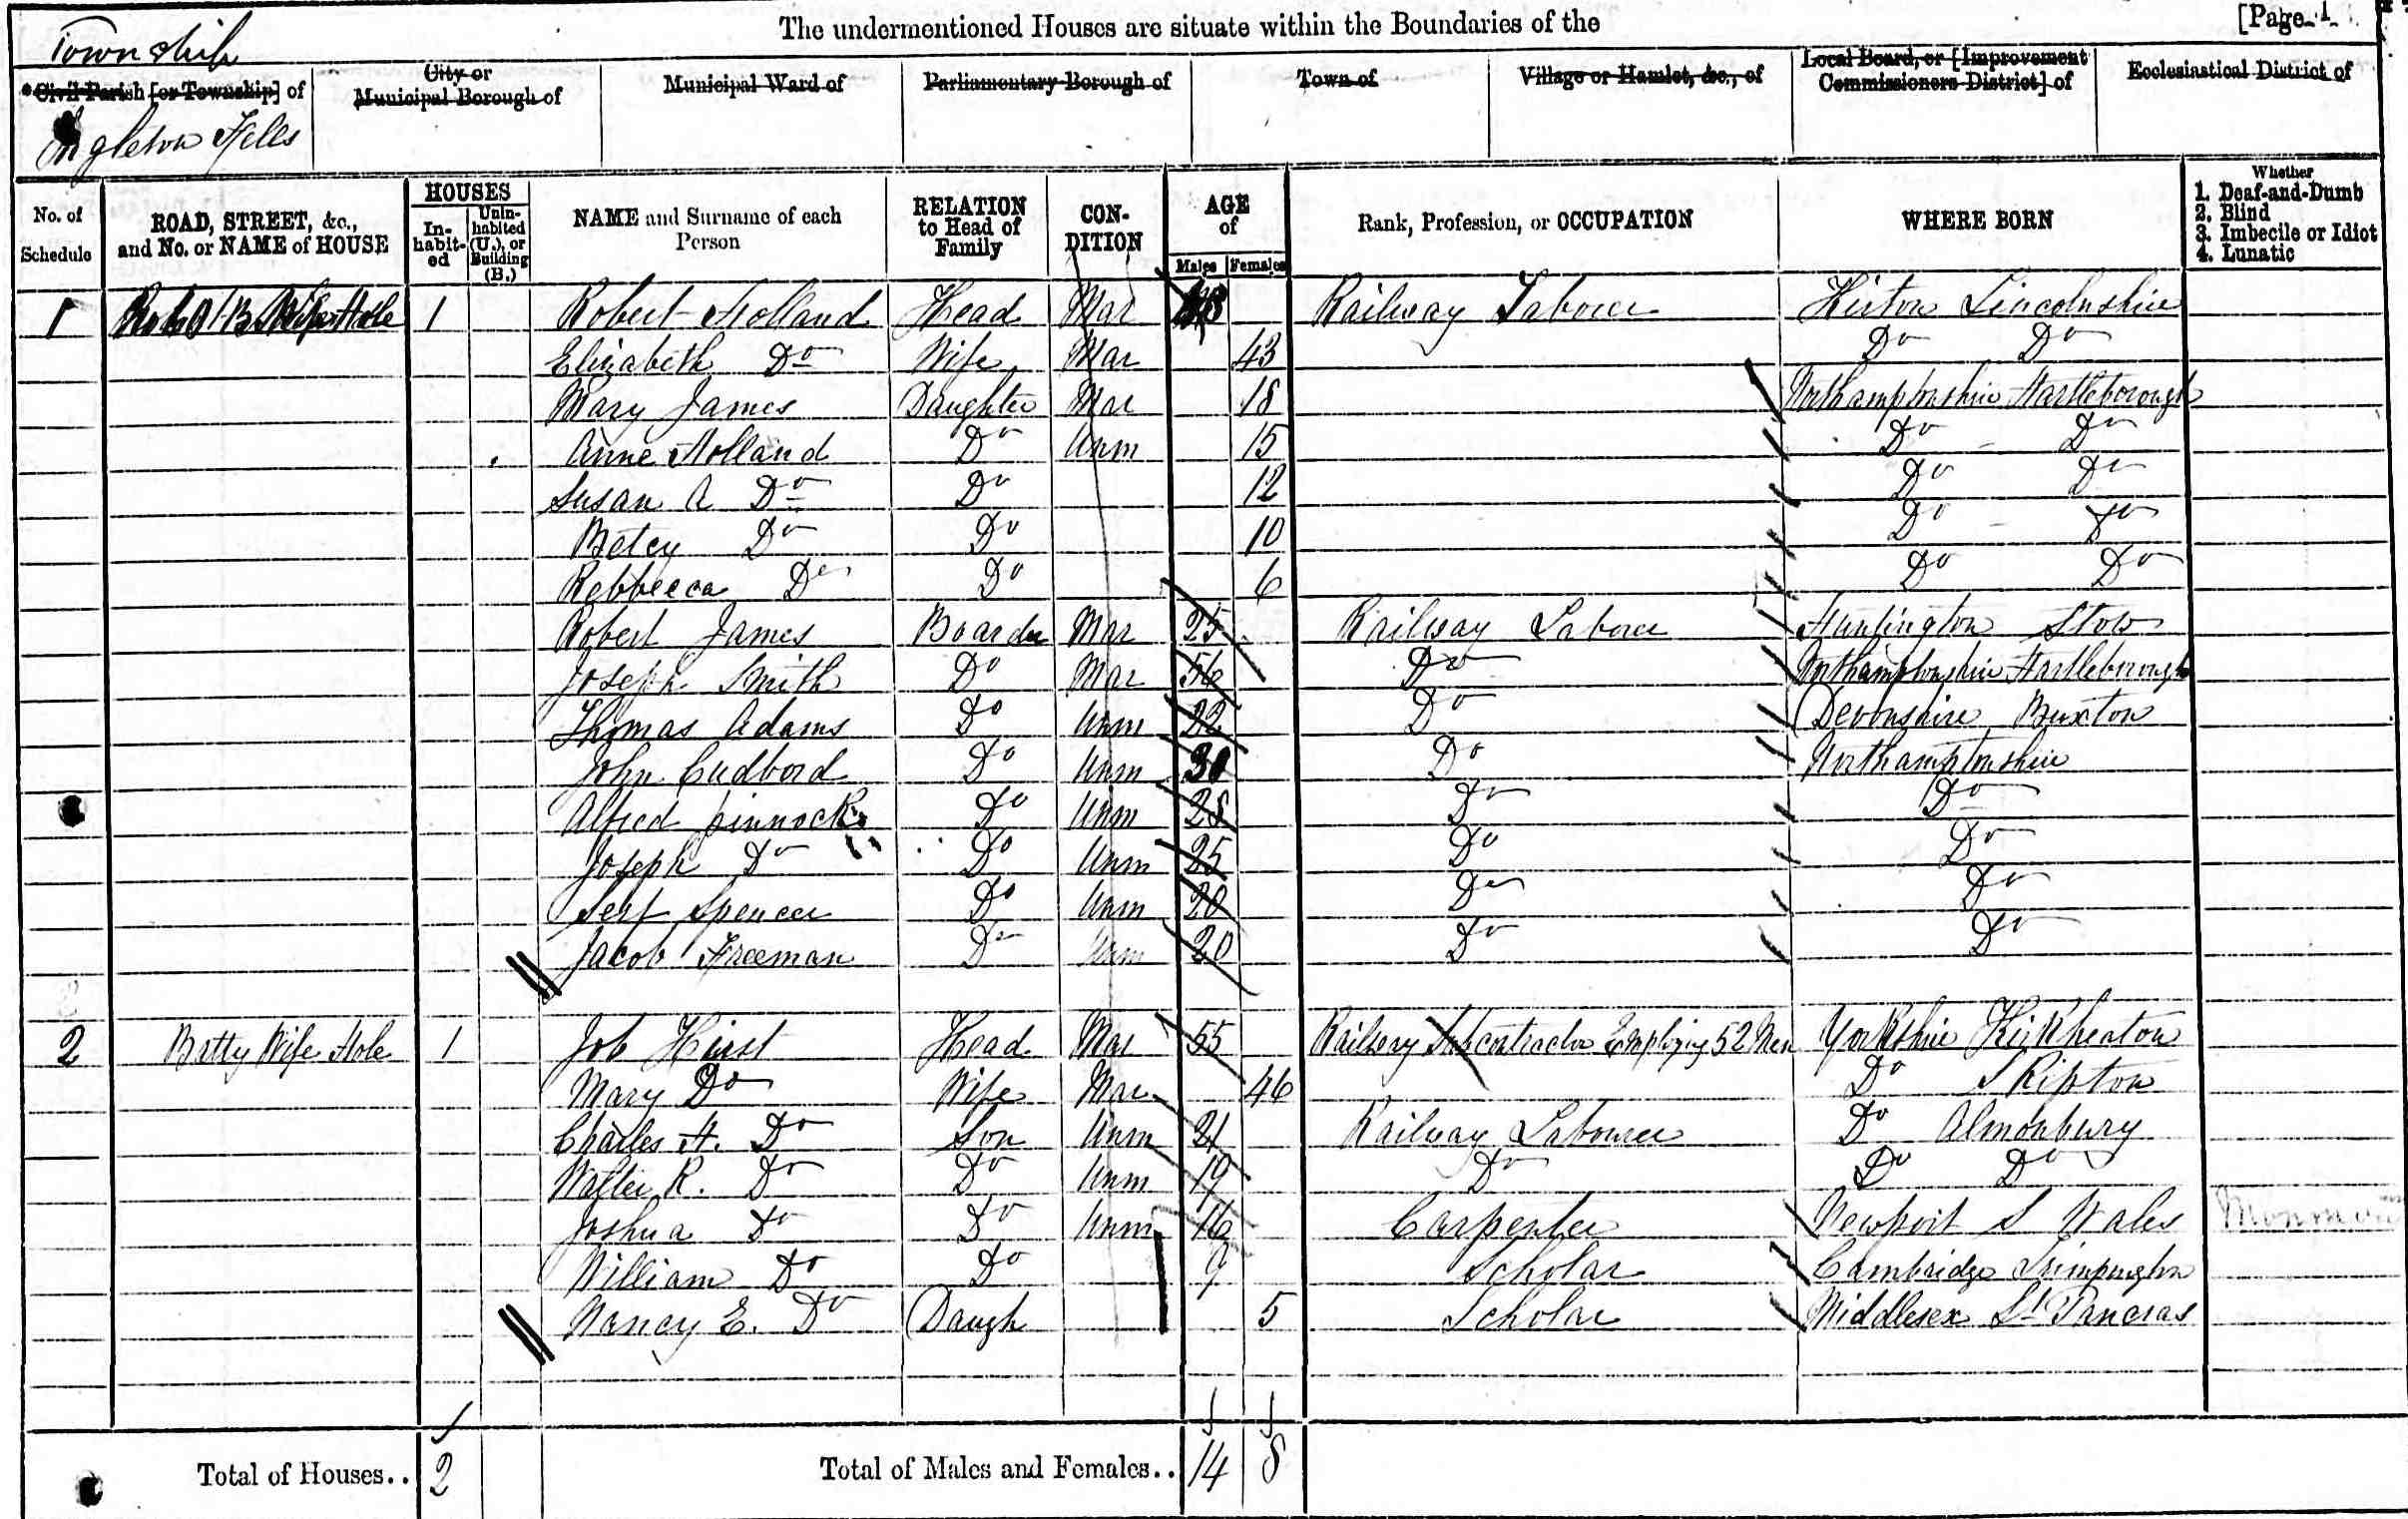 The undermentioned Houses are situate within the Boundaries of the
[Page 1
Township
Civil Parish [or Township] of
City or Municipal Borough of
Municipal Ward of
Parliamentary Borough of
Town of
Village or Hamlet, &c., of
Local Board, or [Improvement Commissioners District] of
Ecclesiastical District of
Ingleton Fells
No. of Schedule
ROAD, STREET, &c., and No. or NAME of HOUSE
HOUSES
In-habit-ed
Unin-habited (U.), or Building (B.)
NAME and Surname of each Person
RELATION to Head of Family
CON-DITION
AGE of
Males
Females
Rank, Profession, or OCCUPATION
WHERE BORN
Whether
1. Deaf-and-Dumb
2. Blind
3. Imbecile or Idiot
4. Lunatic
1 Wife Hole 1 Robert Holland Head Mar Railway Labourer Lincolnshire
Elizabeth Do Wife Mar 43 Do Do
Mary James Daughter Mar 18 Northamptonshire
Anne Holland Do Unm 15 Do Do
Susan A Do Do 12 Do Do
Betcy Do Do 10 Do Do
Rebbecca Do Do 6 Do Do
Robert James Boarder Mar 25 Railway Labourer Huntington Stow
Joseph Smith Do Mar 56 Do Northamptonshire
Thomas Adams Do Unm 22 Do Devonshire Buxton
John Cudbord Do Unm 30 Do Northamptonshire
Alfred pinnock Do Unm 28 Do Do
Joseph Do Do Unm 25 Do Do
Spencer Do Unm 20 Do Do
Jacob Freeman Do Unm 20 Do Do
2 Batty Wife Hole 1 Job Hirst Head Mar 55 Railway Subcontractor Employing 52 Men Yorkshire Kirkheaton
Mary Do Wife Mar 46 Do Skipton
Charles H. Do Son Unm 21 Railway Labourer Do Almonbury
Walter R. Do Do Unm 19 Do Do Do
Joshua Do Do Unm 16 Carpenter Newport S Wales
William Do Do 9 Scholar Cambridge Trimpington
Nancy E. Do Daugh 5 Scholar Middlesex St Pancras
Total of Houses.. 2
Total of Males and Females.. 14 8